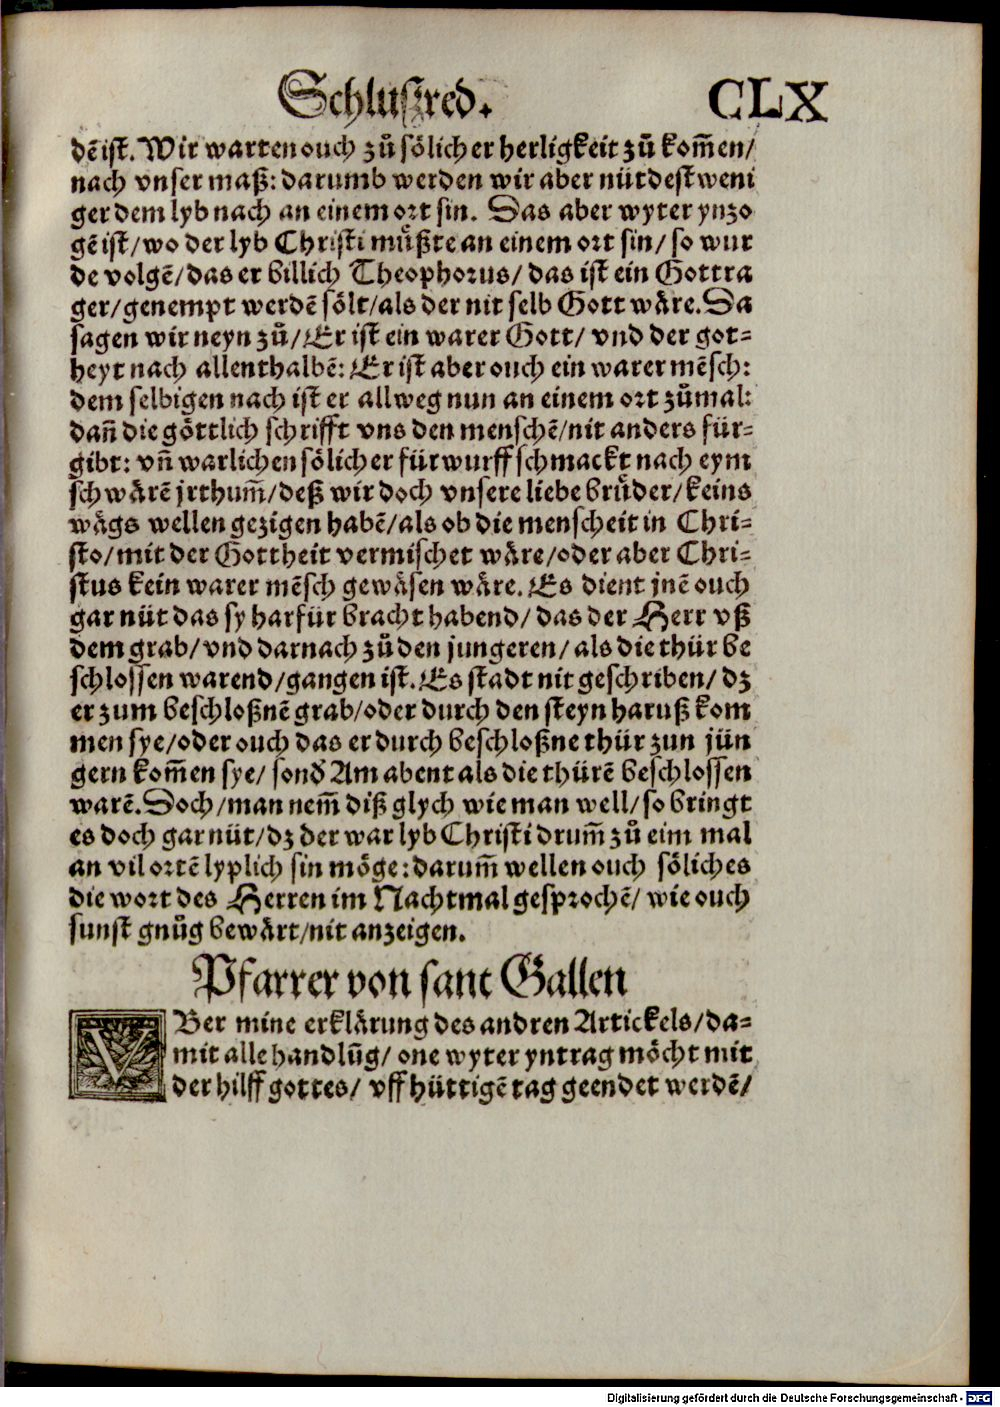 Schluſzred. CLX
dẽ iſt. Wir warten ouch zů ſölicher herligkeit zů kom̃en/
nach vnſer maß: darumb werden wir aber nüt deſt weni
ger dem lyb nach an einem ort ſin. Das aber wyter ynzo
gẽ iſt/ wo der lyb Chriſti müßte an einem ort ſin/ ſo wur
de volgẽ/ das er billich Theophorus/ das iſt ein Gottra
ger/ genempt werdẽ ſölt/ als der nit ſelb Gott wäre. Da
ſagen wir neyn zů/ Er iſt ein warer Gott/ vnd der got⸗
heyt nach allenthalbẽ: Er iſt aber ouch ein warer mẽſch:
dem ſelbigen nach iſt er allweg nun an einem ort zůmal:
dañ die göttlich ſchrifft vns den menſchẽ/ nit anders für⸗
gibt: vñ warlichen ſölicher fürwurff ſchmackt nach eym
ſchwärẽ jrthum̃/ deß wir doch vnſere liebe brüder/ keins
wägs wellen gezigen habẽ/ als ob die menſcheit in Chri⸗
ſto/ mit der Gottheit vermiſchet wäre/ oder aber Chri⸗
ſtus kein warer mẽſch gewäſen wäre. Es dient jnẽ ouch
gar nüt das ſy harfür bracht habend/ das der Herr vß
dem grab/ vnd darnach zů den jungeren/ als die thür be
ſchloſſen warend/ gangen iſt. Es ſtadt nit geſchriben/ dz
er zum beſchloßnẽ grab/ oder durch den ſteyn haruß kom
men ſye/ oder ouch das er durch beſchloßne thür zun jün
gern kom̃en ſye/ ſond̃ Am abent als die thürẽ beſchloſſen
warẽ. Doch/ man nem̃ diß glych wie man well/ ſo bringt
es doch gar nüt/ dz der war lyb Chriſti drum̃ zů eim mal
an vil ortẽ lyplich ſin möge: darum̃ wellen ouch ſöliches
die wort des Herren im Nachtmal geſprochẽ/ wie ouch
ſunſt gnůg bewärt/ nit anzeigen.
Pfarrer von ſant Gallen
VBer mine erklärung des andren Artickels/ da⸗
mit alle handlũg/ one wyter yntrag möcht mit
der hilff gottes/ vff hüttigẽ tag geendet werdẽ/
Digitalisierung gefördert durch die Deutsche Forschungsgemeinschaft - DFG